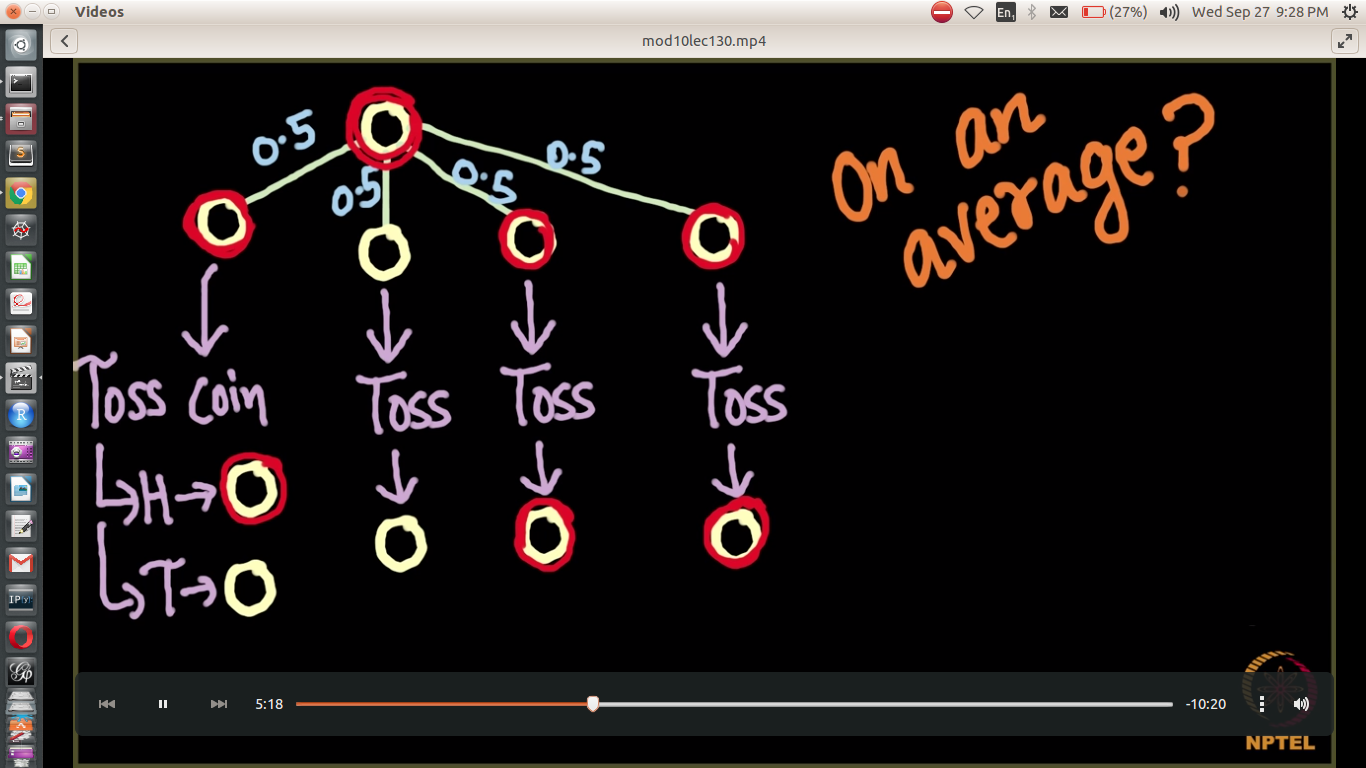 Videos
En1
(27%)
Wed Sep 27 9:28 PM
mod10lec130.mp4
0.5
0.5
0.5
0.5
On an
average?
Toss Coin
Toss
Toss
Toss
H
T
5:18
-10:20
NPTEL